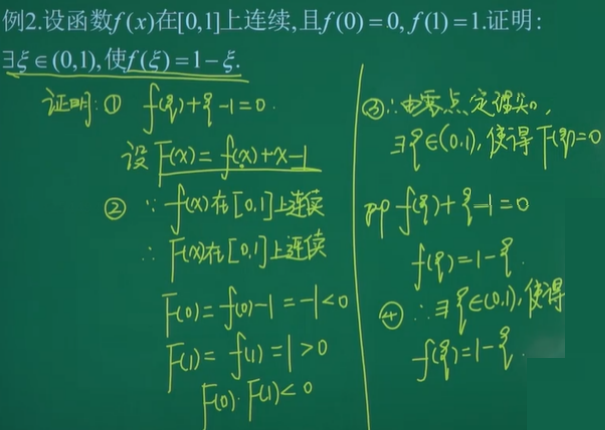 例2.设函数f(x)在[0,1]上连续,且f(0)=0,f(1)=1.证明:
∃ξ∈(0,1),使f(ξ)=1−ξ.
证明: ① f(ξ)+ξ-1=0.
设 F(x)=f(x)+x-1
② ∵ f(x)在[0,1]上连续
∴ F(x)在[0,1]上连续
F(0)=f(0)-1=-1<0
F(1)=f(1)=1>0
F(0)·F(1)<0
③∴由零点定理知,
∃ξ∈(0,1),使得F(ξ)=0
即 f(ξ)+ξ-1=0
f(ξ)=1-ξ.
④ ∴∃ξ∈(0,1),使得
f(ξ)=1-ξ.